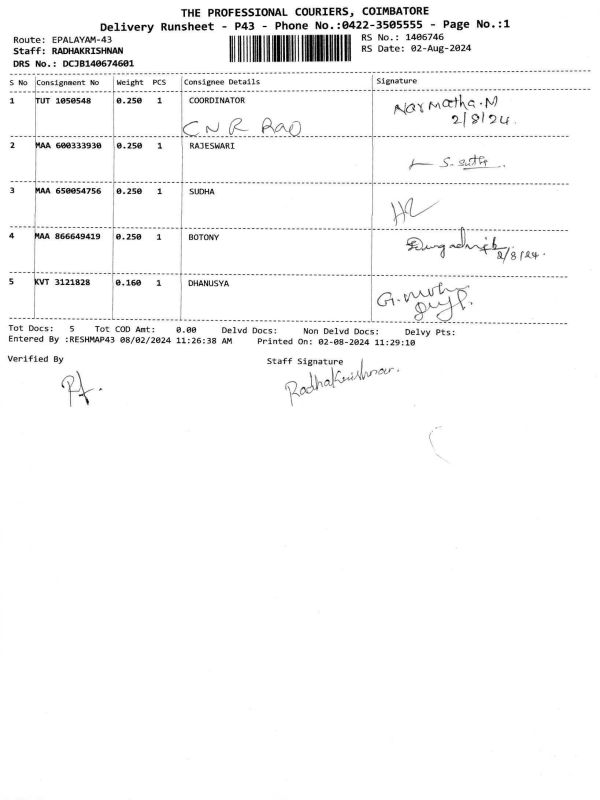 THE PROFESSIONAL COURIERS, COIMBATORE
Delivery Runsheet - P43 - Phone No.:0422-3505555 - Page No.:1
Route: EPALAYAM-43 RS No.: 1406746
Staff: RADHAKRISHNAN RS Date: 02-Aug-2024
DRS No.: DCJB140674601
S No Consignment No Weight PCS Consignee Details Signature
1 TUT 1050548 0.250 1 COORDINATOR Narmatha.M
CNR RAO 2/8/24.
2 MAA 600333930 0.250 1 RAJESWARI
S.
3 MAA 650054756 0.250 1 SUDHA
4 MAA 866649419 0.250 1 BOTONY
2/8/24.
5 KVT 3121828 0.160 1 DHANUSYA
G.
Tot Docs: 5 Tot COD Amt: 0.00 Delvd Docs: Non Delvd Docs: Delvy Pts:
Entered By :RESHMAP43 08/02/2024 11:26:38 AM Printed On: 02-08-2024 11:29:10
Verified By Staff Signature
RadhaKrishnan.